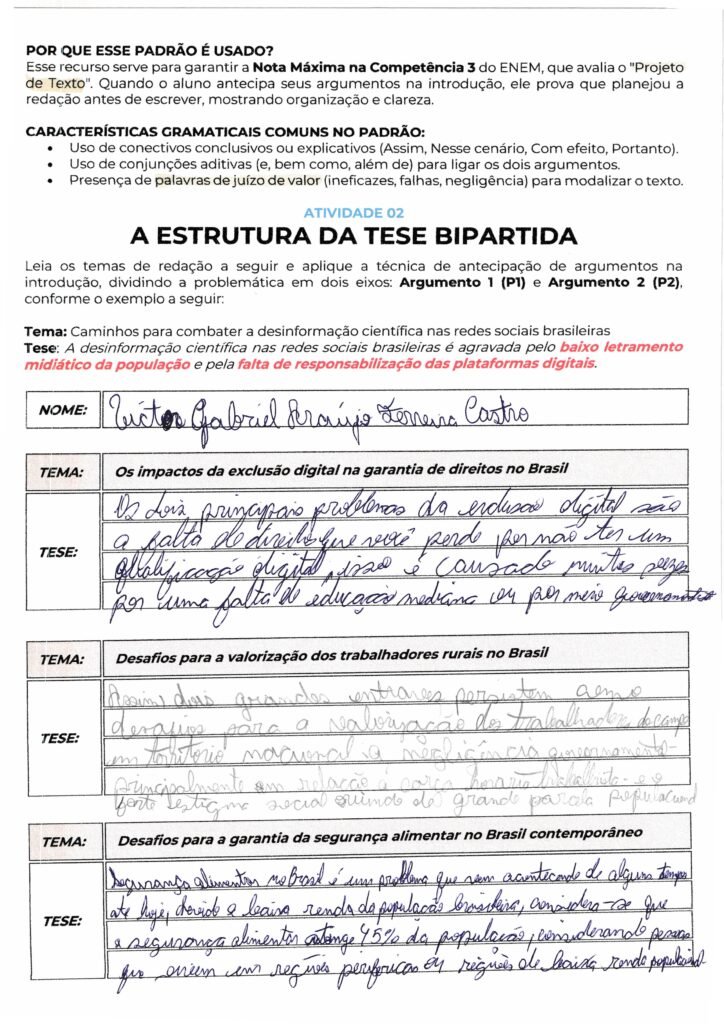 POR QUE ESSE PADRÃO É USADO?
Esse recurso serve para garantir a Nota Máxima na Competência 3 do ENEM, que avalia o "Projeto
de Texto". Quando o aluno antecipa seus argumentos na introdução, ele prova que planejou a
redação antes de escrever, mostrando organização e clareza.
CARACTERÍSTICAS GRAMATICAIS COMUNS NO PADRÃO:
• Uso de conectivos conclusivos ou explicativos (Assim, Nesse cenário, Com efeito, Portanto).
• Uso de conjunções aditivas (e, bem como, além de) para ligar os dois argumentos.
• Presença de palavras de juízo de valor (ineficazes, falhas, negligência) para modalizar o texto.
ATIVIDADE 02
A ESTRUTURA DA TESE BIPARTIDA
Leia os temas de redação a seguir e aplique a técnica de antecipação de argumentos na
introdução, dividindo a problemática em dois eixos: Argumento 1 (P1) e Argumento 2 (P2),
conforme o exemplo a seguir:
Tema: Caminhos para combater a desinformação científica nas redes sociais brasileiras
Tese: A desinformação científica nas redes sociais brasileiras é agravada pelo baixo letramento
midiático da população e pela falta de responsabilização das plataformas digitais.
NOME: Victor Gabriel Araújo Ferreira Castro
TEMA: Os impactos da exclusão digital na garantia de direitos no Brasil
TESE:
Os dois principais problemas da exclusão digital são
a falta de direito que você perde por não ter um
qualificação digital, isso é causado muitas vezes
por uma falta de educação ou por meio
TEMA: Desafios para a valorização dos trabalhadores rurais no Brasil
TESE:
Assim, dois grandes entraves persistem como
desafios para a valorização dos trabalhadores do campo
em território nacional a negligência governamental-
principalmente em relação à carga horária trabalhista- e o
forte estigma social oriundo de grande parcela populacional
TEMA: Desafios para a garantia da segurança alimentar no Brasil contemporâneo
TESE:
Segurança alimentar no Brasil é um problema que vem acontecendo de alguns tempos
até hoje, devido a baixa renda da população brasileira, considera-se que
a segurança alimentar atinge 45% da população, considerando pessoas
que vivem em regiões periféricas ou regiões de baixa renda populacional